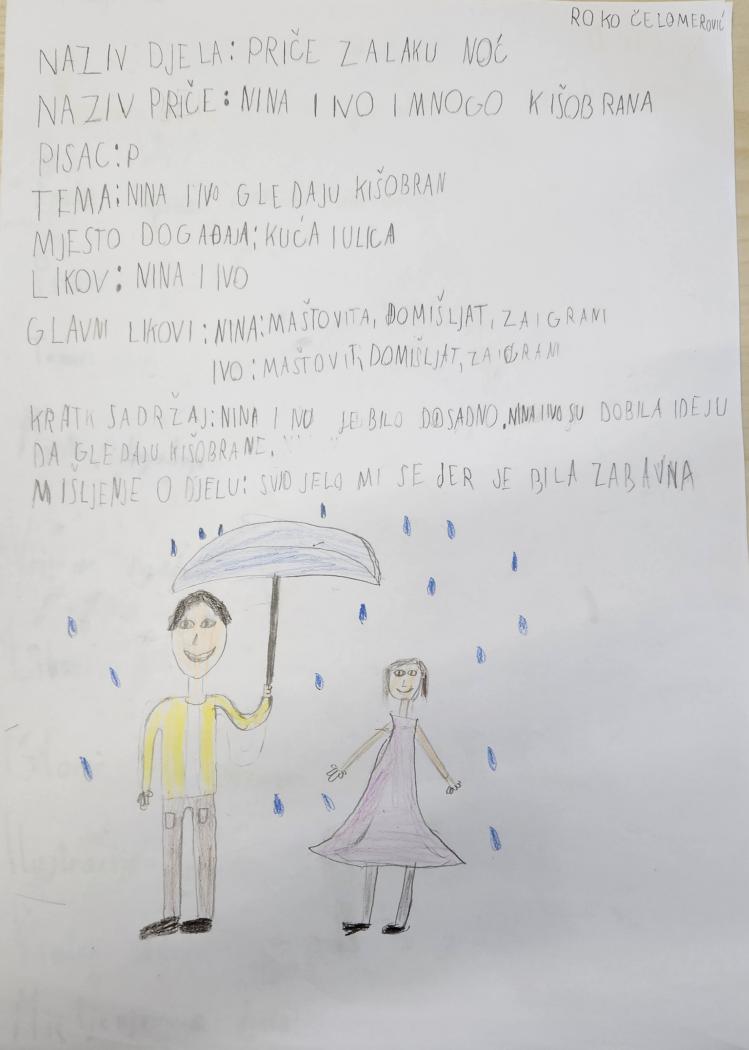 ROKO ČELOMEROVIĆ
NAZIV DJELA: PRIČE ZALAKU NOĆ
NAZIV PRIČE: NINA I IVO I MNOGO KIŠOBRANA
PISAC: P
TEMA: NINA I IVO GLEDAJU KIŠOBRAN
MJESTO DOGAĐAJA: KUĆA I ULICA
LIKOV: NINA I IVO
GLAVNI LIKOVI: NINA: MAŠTOVITA, DOMIŠLJAT, ZAIGRANI
IVO: MAŠTOVIT, DOMIŠLJAT, ZAIGRANI
KRATK SADRŽAJ: NINA I IVO JE BILO DOSADNO. NINA I IVO SU DOBILA IDEJU
DA GLEDAJU KIŠOBRANE.
MIŠLJENJE O DJELU: SVIDJELO MI SE JER JE BILA ZABAVNA